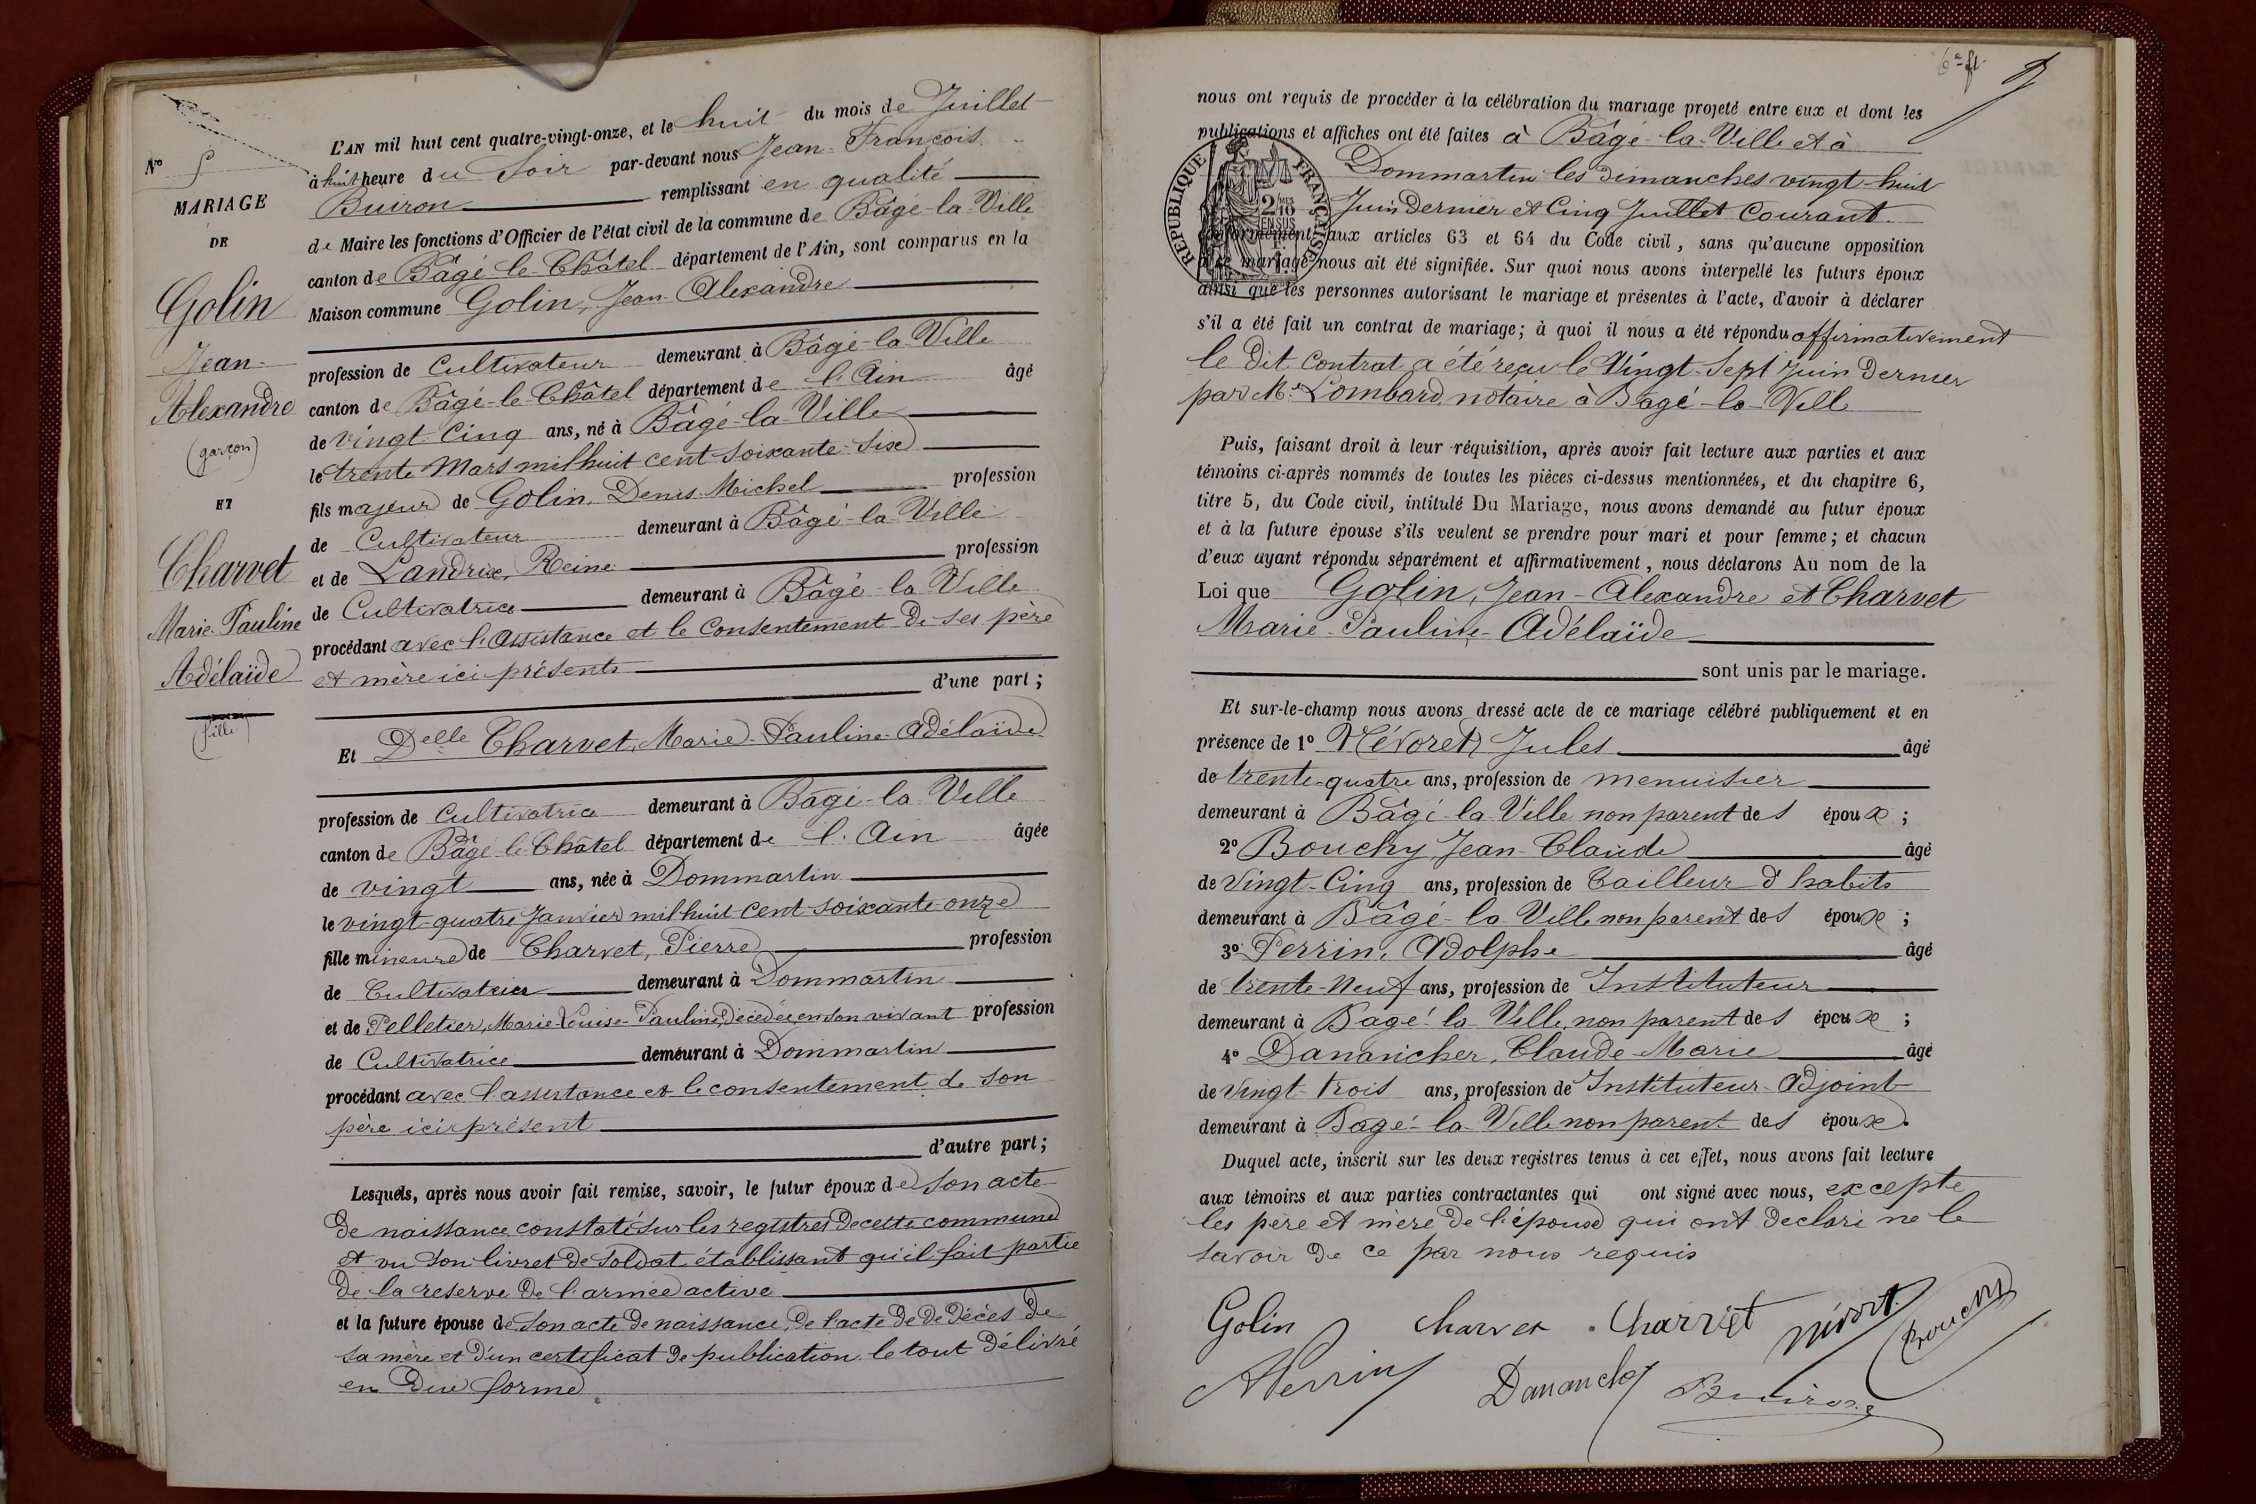 No 5
MARIAGE
DE
Golin
Jean-
Alexandre
(garçon)
ET
Charvet
Marie-Pauline
Adélaïde
(fille)
L'AN mil huit cent quatre-vingt-onze, et le huit du mois de Juillet
à huit heure du Soir par-devant nous Jean-François
Buiron remplissant en qualité
de Maire les fonctions d'Officier de l'état civil de la commune de Bâgé-la-Ville
canton de Bâgé-le-Châtel département de l'Ain, sont comparus en la
Maison commune Golin, Jean-Alexandre
profession de Cultivateur demeurant à Bâgé-la-Ville
canton de Bâgé-le-Châtel département de l'Ain âgé
de vingt-cinq ans, né à Bâgé-la-Ville
le trente Mars mil huit cent soixante-six
fils majeur de Golin, Denis-Michel profession
de Cultivateur demeurant à Bâgé-la-Ville
et de Landrix, Reine profession
de Cultivatrice demeurant à Bâgé-la-Ville
procédant avec l'assistance et le consentement de ses père
et mère ici présents
d'une part;
Et Delle Charvet, Marie-Pauline-Adélaïde
profession de Cultivatrice demeurant à Bâgé-la-Ville
canton de Bâgé-le-Châtel département de l'Ain âgée
de vingt ans, née à Dommartin
le vingt-quatre Janvier mil huit cent soixante-onze
fille mineure de Charvet, Pierre profession
de Cultivateur demeurant à Dommartin
et de Pelletier, Marie-Louise-Pauline, décédée, en son vivant profession
de Cultivatrice demeurant à Dommartin
procédant avec l'assistance et le consentement de son
père ici présent
d'autre part;
Lesquels, après nous avoir fait remise, savoir, le futur époux de son acte
de naissance constaté sur les registres de cette commune
et vu son livret de soldat établissant qu'il fait partie
de la reserve de l'armée active
et la future épouse de son acte de naissance, de l'acte de de décès de
sa mère et d'un certificat de publication le tout délivré
en due forme
6e ft.
nous ont requis de procéder à la célébration du mariage projeté entre eux et dont les
publications et affiches ont été faites à Bâgé-la-Ville et à
Dommartin les dimanches vingt-huit
Juin dernier et cinq Juillet courant
conformément aux articles 63 et 64 du Code civil, sans qu'aucune opposition
à ce mariage nous ait été signifiée. Sur quoi nous avons interpellé les futurs époux
ainsi que les personnes autorisant le mariage et présentes à l'acte, d'avoir à déclarer
s'il a été fait un contrat de mariage; à quoi il nous a été répondu affirmativement
le dit contrat a été reçu le Vingt-Sept Juin dernier
par Me Lombard notaire à Bâgé-la-Ville
RÉPUBLIQUE FRANÇAISE
2/10 MES
EN SUS
Puis, faisant droit à leur réquisition, après avoir fait lecture aux parties et aux
témoins ci-après nommés de toutes les pièces ci-dessus mentionnées, et du chapitre 6,
titre 5, du Code civil, intitulé Du Mariage, nous avons demandé au futur époux
et à la future épouse s'ils veulent se prendre pour mari et pour femme; et chacun
d'eux ayant répondu séparément et affirmativement, nous déclarons Au nom de la
Loi que Golin, Jean-Alexandre et Charvet
Marie-Pauline-Adélaïde
sont unis par le mariage.
Et sur-le-champ nous avons dressé acte de ce mariage célébré publiquement et en
présence de 1o Névoret Jules âgé
de trente-quatre ans, profession de menuisier
demeurant à Bâgé-la-Ville non parent des époux;
2o Bouchy Jean-Claude âgé
de Vingt-Cinq ans, profession de Tailleur d'habits
demeurant à Bâgé-la-Ville non parent des époux;
3o Perrin, Adolphe âgé
de trente-neuf ans, profession de Instituteur
demeurant à Bâgé-la-Ville, non parent des époux;
4o Dananicher, Claude-Marie âgé
de Vingt-trois ans, profession de Instituteur-Adjoint
demeurant à Bagé-la-Ville non parent des époux.
Duquel acte, inscrit sur les deux registres tenus à cet effet, nous avons fait lecture
aux témoins et aux parties contractantes qui ont signé avec nous, excepte
les père et mère de l'épouse qui ont declaré ne le
savoir de ce par nous requis
Golin Charvet Charvet Névort Bouchy
APerrin Dananche Buiron